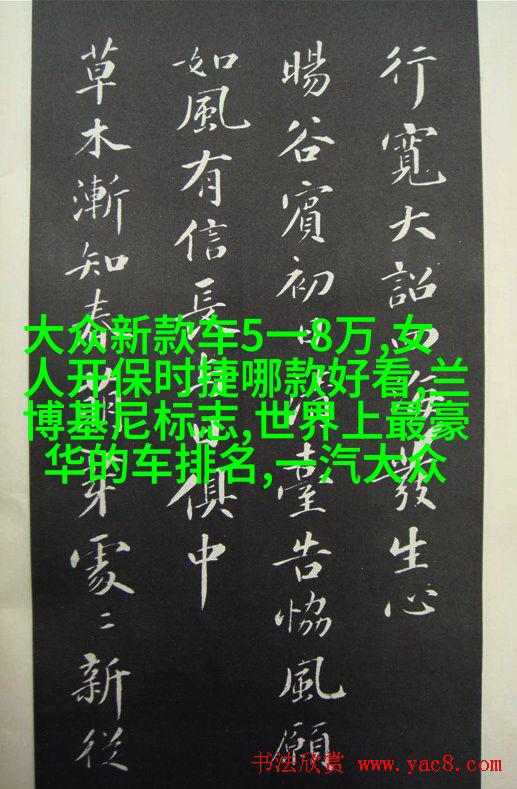 行寬大詔發生心
暘谷賓初日清臺告協風願
如風有信長與日俱中
草木漸知春萌芽處〻新從
大众新款车5一8万,女
人开保时捷哪款好看,兰
博基尼标志,世界上最豪
华的车排名,一汽大众
书法欣赏 www.yac8.com